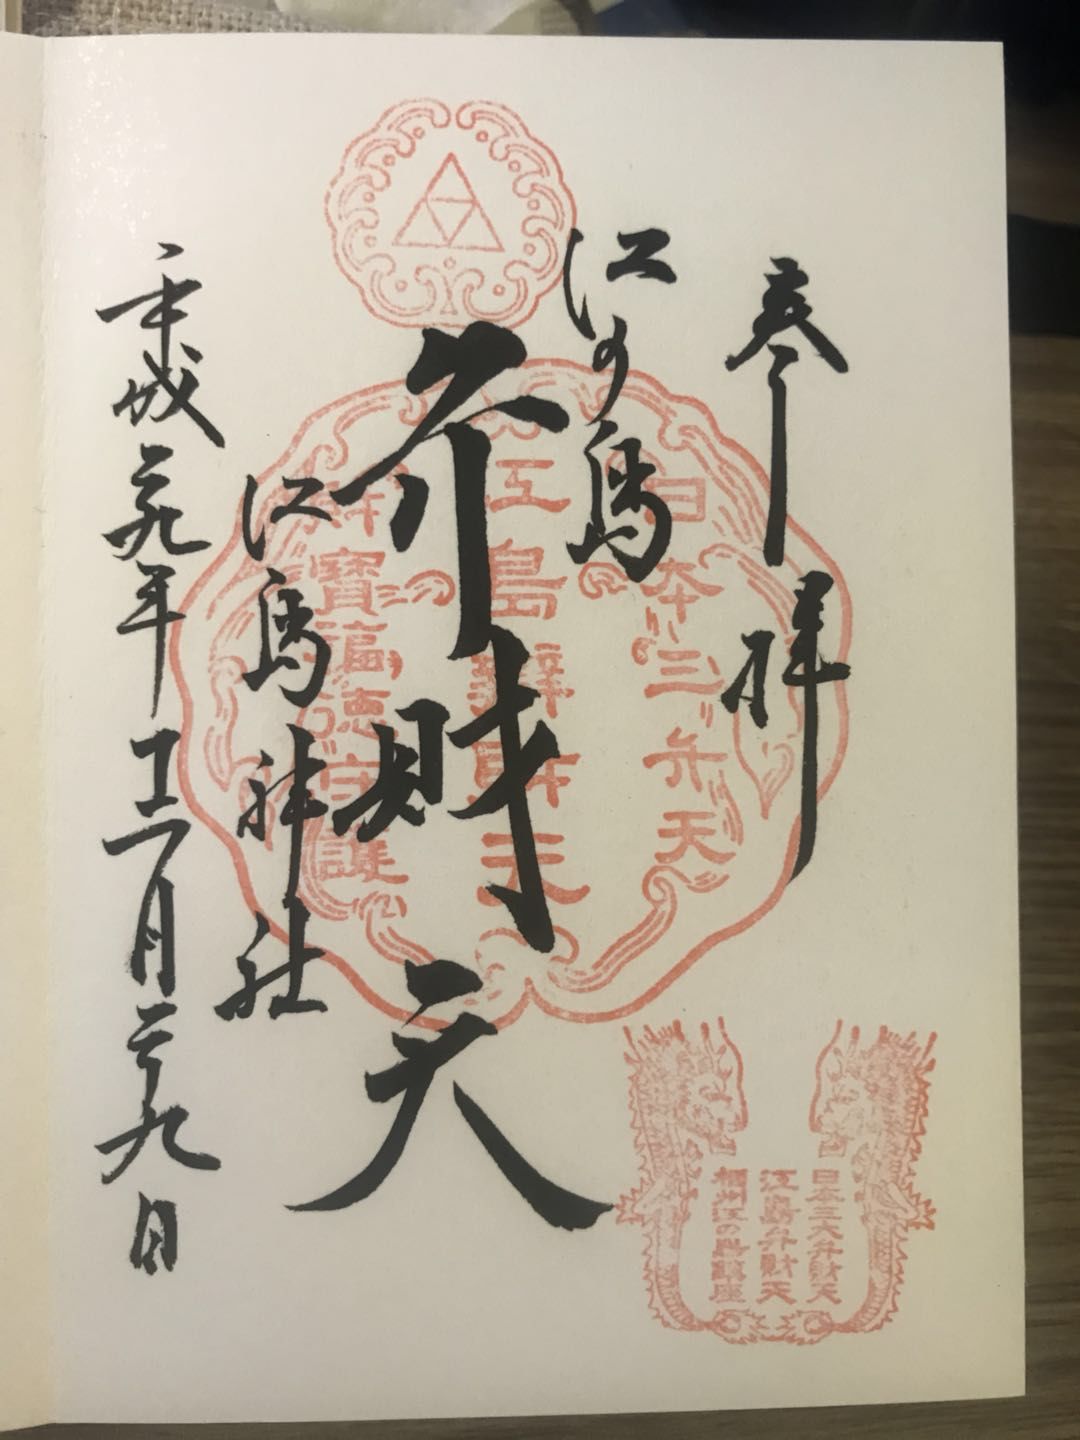 参拝
江の島
弁財天
江島神社
平成二九年十二月二十九日
日本三弁天
江島辨財天
財寶福徳守護
日本三大弁財天
江島弁財天
相州江の島鎮座